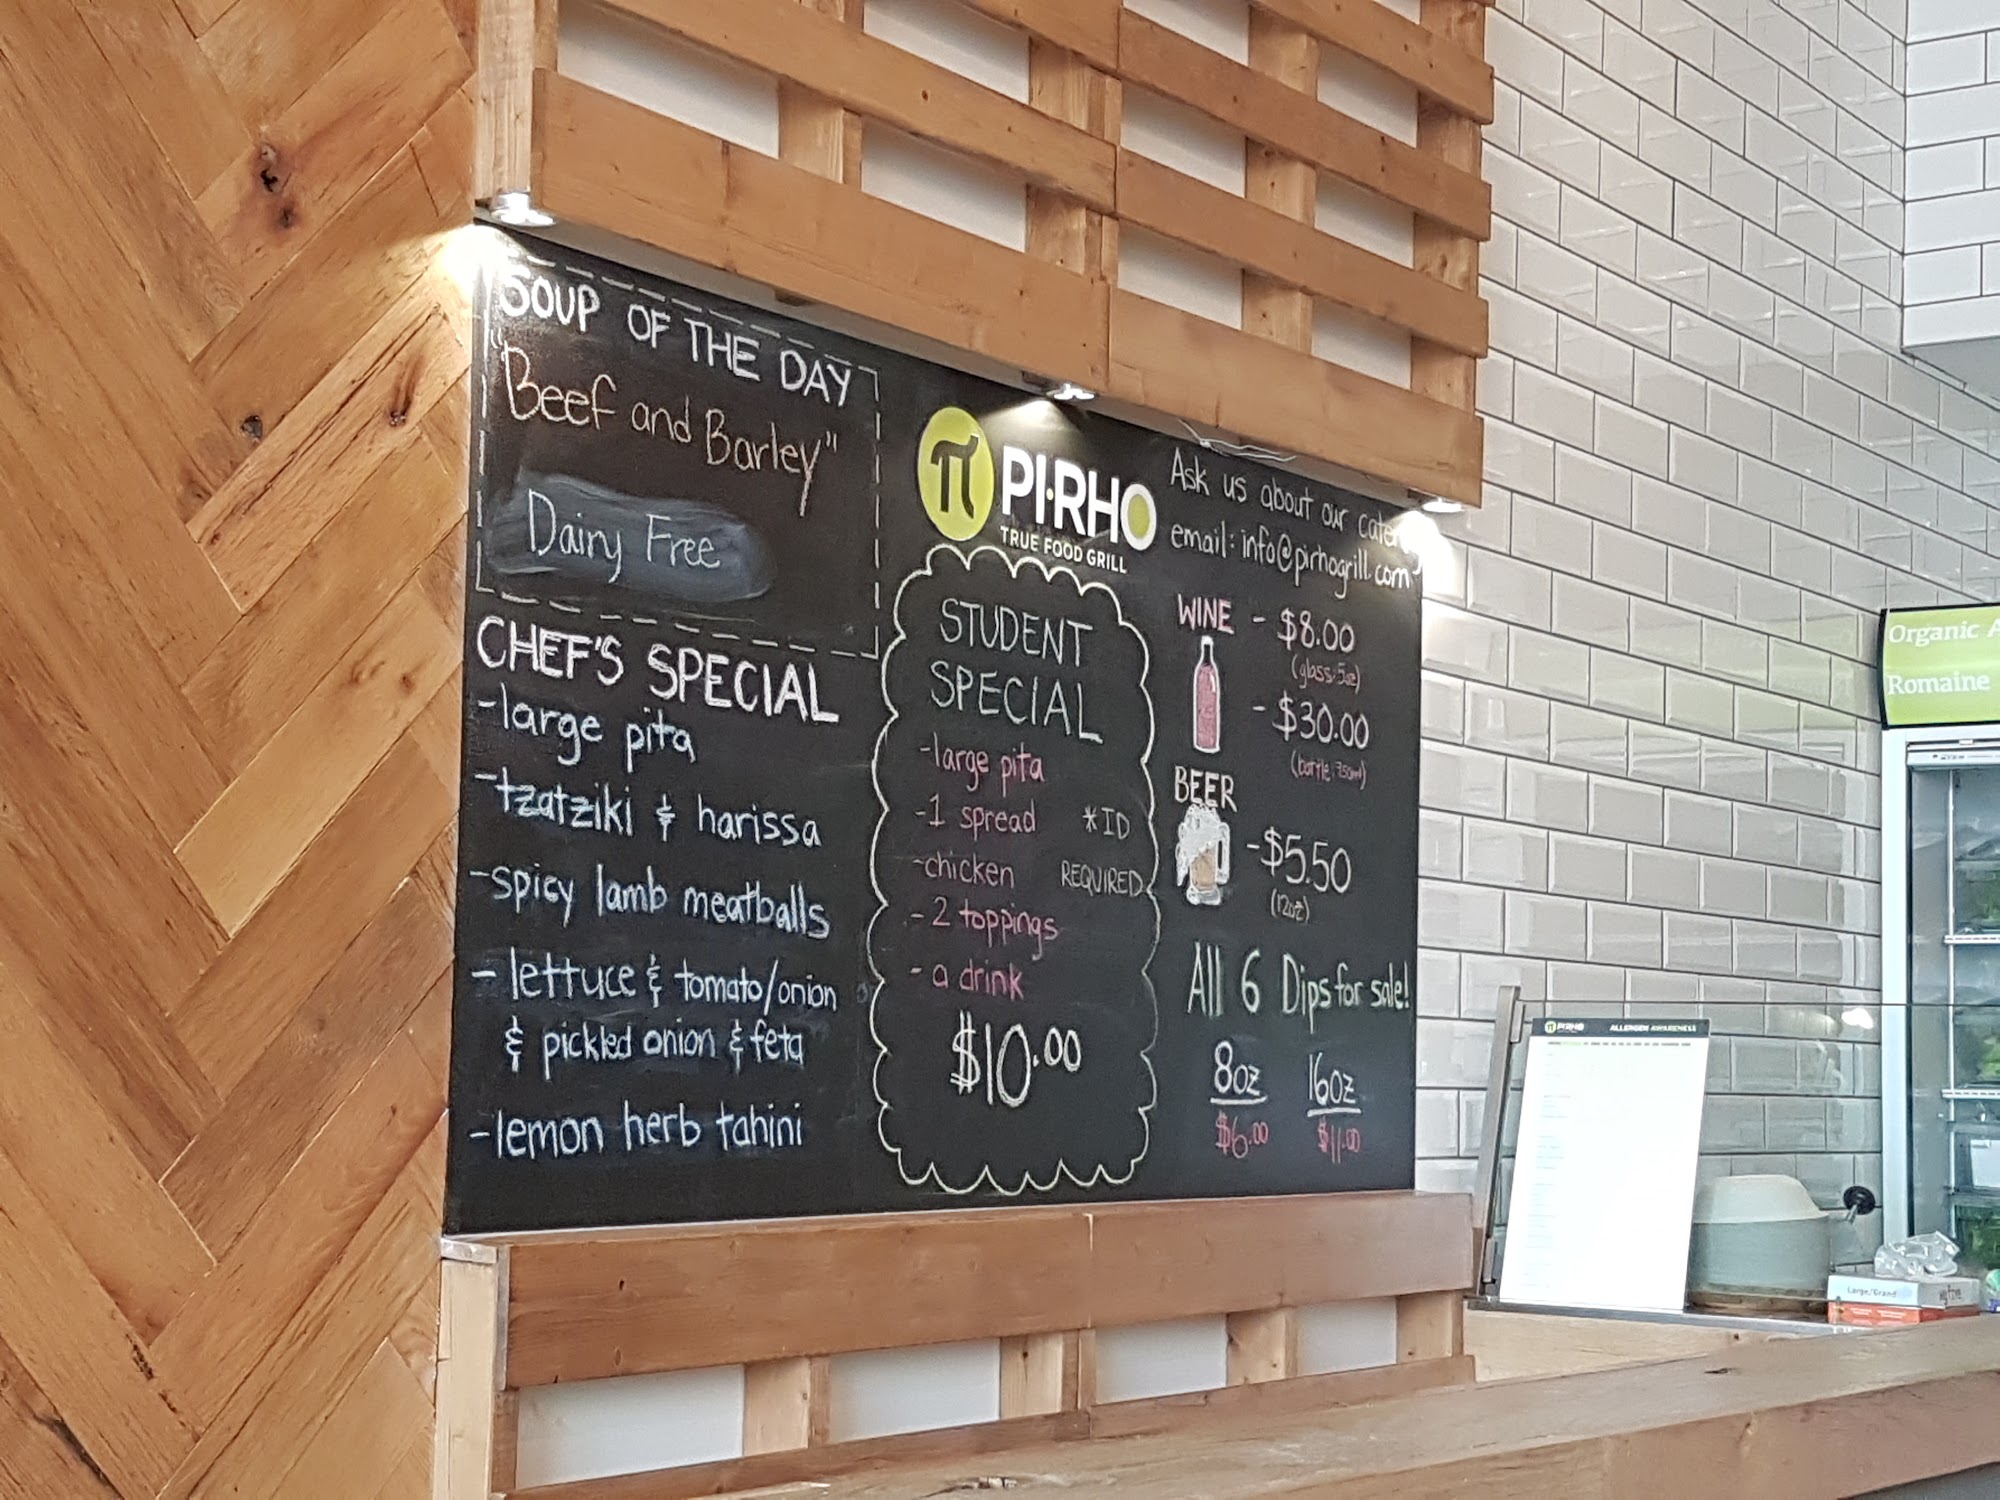 SOUP OF THE DAY
"Beef and Barley"
Dairy Free
CHEF'S SPECIAL
-large pita
-tzatziki & harissa
-spicy lamb meatballs
- lettuce & tomato/onion
& pickled onion & feta
-lemon herb tahini
π PI·RHO
TRUE FOOD GRILL
STUDENT
SPECIAL
-large pita
-1 spread
-chicken
- 2 toppings
- a drink
*ID
REQUIRED
$10.00
Ask us about our
email: info@pirhogrill.com
WINE - $8.00
(glass, 5oz)
- $30.00
(bottle, 750ml)
BEER
-$5.50
(12oz)
All 6 Dips for sale!
8oz 16oz
$6.00 $11.00
Organic
Romaine
π PI·RHO ALLERGEN AWARENESS
Large/Grand